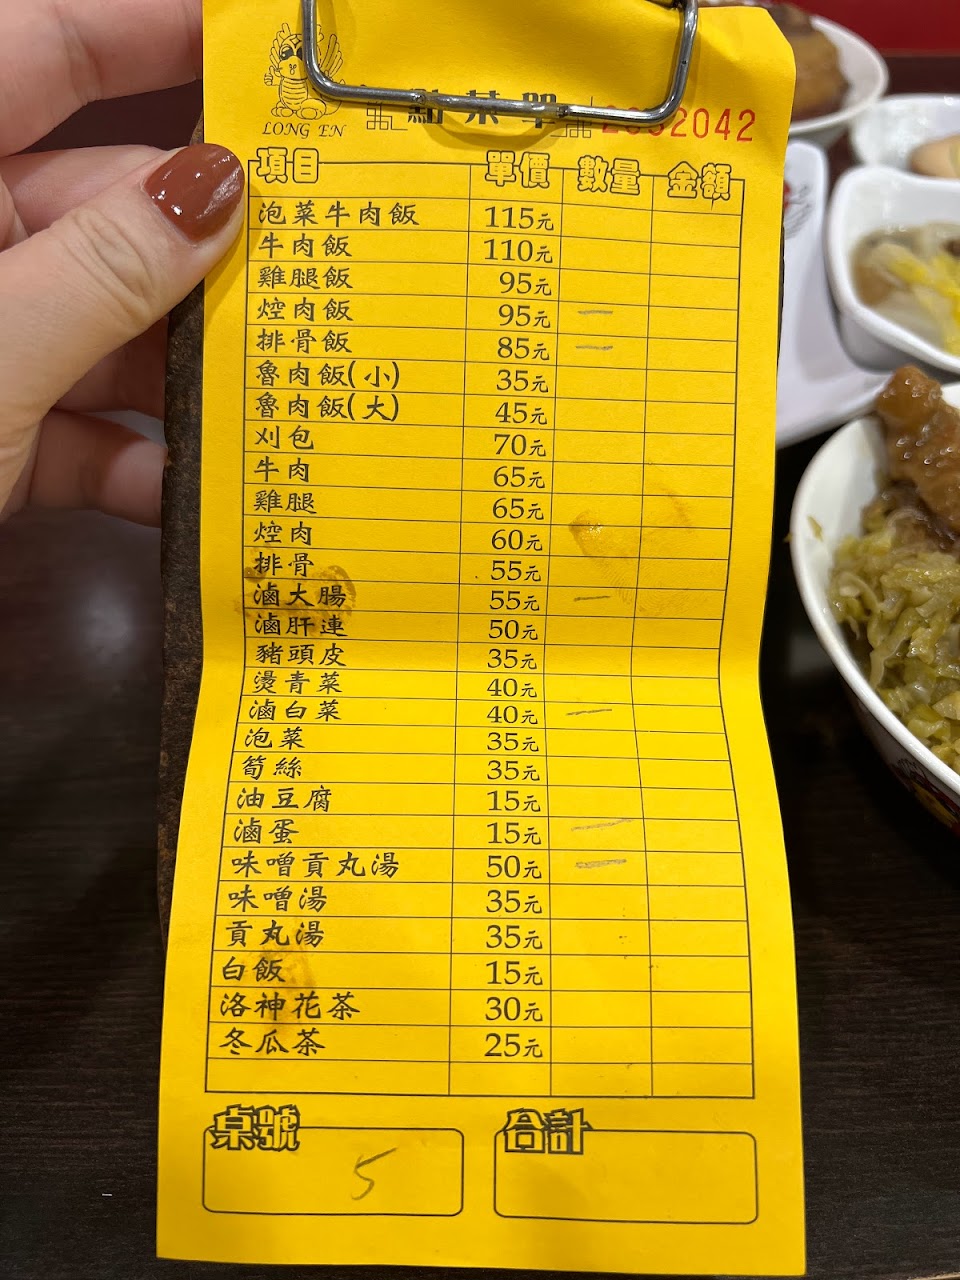 LONG EN
點菜單 2032042
項目 單價 數量 金額
泡菜牛肉飯 115元
牛肉飯 110元
雞腿飯 95元
焢肉飯 95元 一
排骨飯 85元 一
魯肉飯(小) 35元
魯肉飯(大) 45元
刈包 70元
牛肉 65元
雞腿 65元
焢肉 60元
排骨 55元
滷大腸 55元 一
滷肝連 50元
豬頭皮 35元
燙青菜 40元
滷白菜 40元 一
泡菜 35元
筍絲 35元
油豆腐 15元
滷蛋 15元 一
味噌貢丸湯 50元 一
味噌湯 35元
貢丸湯 35元
白飯 15元
洛神花茶 30元
冬瓜茶 25元
桌號 合計
5